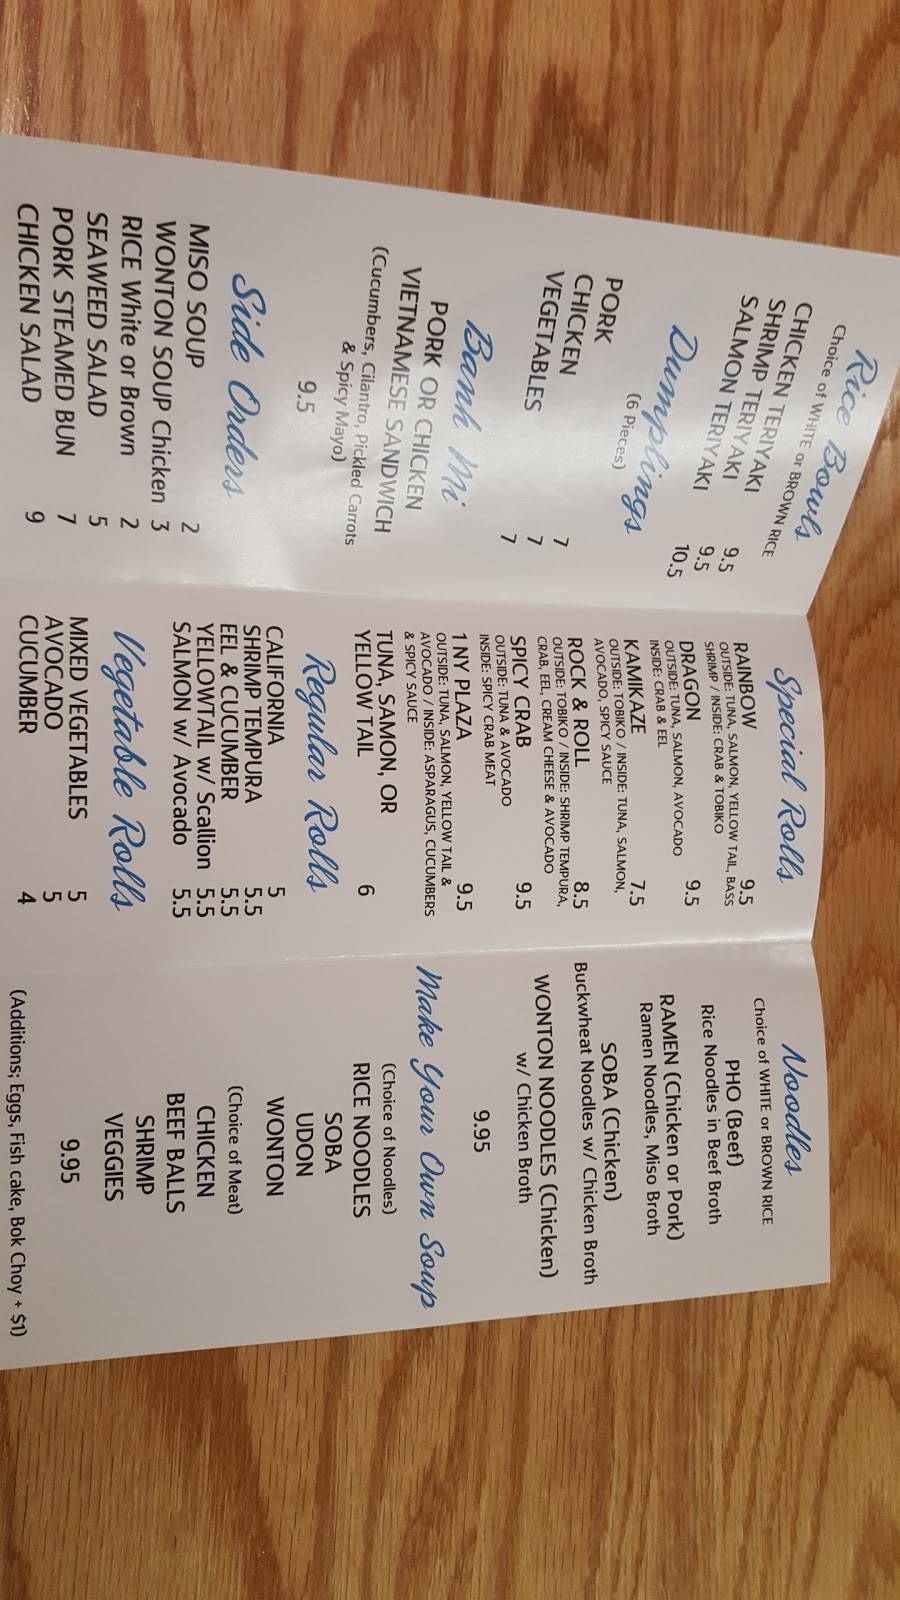 Rice Bowls
Choice of WHITE or BROWN RICE
CHICKEN TERIYAKI 9.5
SHRIMP TERIYAKI 9.5
SALMON TERIYAKI 10.5
Dumplings
(6 Pieces)
PORK 7
CHICKEN 7
VEGETABLES 7
Banh Mi
PORK OR CHICKEN
VIETNAMESE SANDWICH
(Cucumbers, Cilantro, Pickled Carrots
& Spicy Mayo)
9.5
Side Orders
MISO SOUP 2
WONTON SOUP Chicken 3
RICE White or Brown 2
SEAWEED SALAD 5
PORK STEAMED BUN 7
CHICKEN SALAD 9
Special Rolls
RAINBOW 9.5
OUTSIDE: TUNA, SALMON, YELLOW TAIL, BASS
SHRIMP / INSIDE: CRAB & TOBIKO
DRAGON 9.5
OUTSIDE: TUNA, SALMON, AVOCADO
INSIDE: CRAB & EEL
KAMIKAZE 7.5
OUTSIDE: TOBIKO / INSIDE: TUNA, SALMON,
AVOCADO, SPICY SAUCE
ROCK & ROLL 8.5
OUTSIDE: TOBIKO / INSIDE: SHRIMP TEMPURA,
CRAB, EEL, CREAM CHEESE & AVOCADO
SPICY CRAB 9.5
OUTSIDE: TUNA & AVOCADO
INSIDE: SPICY CRAB MEAT
1 NY PLAZA 9.5
OUTSIDE: TUNA, SALMON, YELLOW TAIL &
AVOCADO / INSIDE: ASPARAGUS, CUCUMBERS
& SPICY SAUCE
TUNA, SAMON, OR
YELLOW TAIL 6
Regular Rolls
CALIFORNIA 5
SHRIMP TEMPURA 5.5
EEL & CUCUMBER 5.5
YELLOWTAIL w/ Scallion 5.5
SALMON w/ Avocado 5.5
Vegetable Rolls
MIXED VEGETABLES 5
AVOCADO 5
CUCUMBER 4
Noodles
Choice of WHITE or BROWN RICE
PHO (Beef)
Rice Noodles in Beef Broth
RAMEN (Chicken or Pork)
Ramen Noodles, Miso Broth
SOBA (Chicken)
Buckwheat Noodles w/ Chicken Broth
WONTON NOODLES (Chicken)
w/ Chicken Broth
9.95
Make Your Own Soup
(Choice of Noodles)
RICE NOODLES
SOBA
UDON
WONTON
(Choice of Meat)
CHICKEN
BEEF BALLS
SHRIMP
VEGGIES
9.95
(Additions; Eggs, Fish cake, Bok Choy + $1)